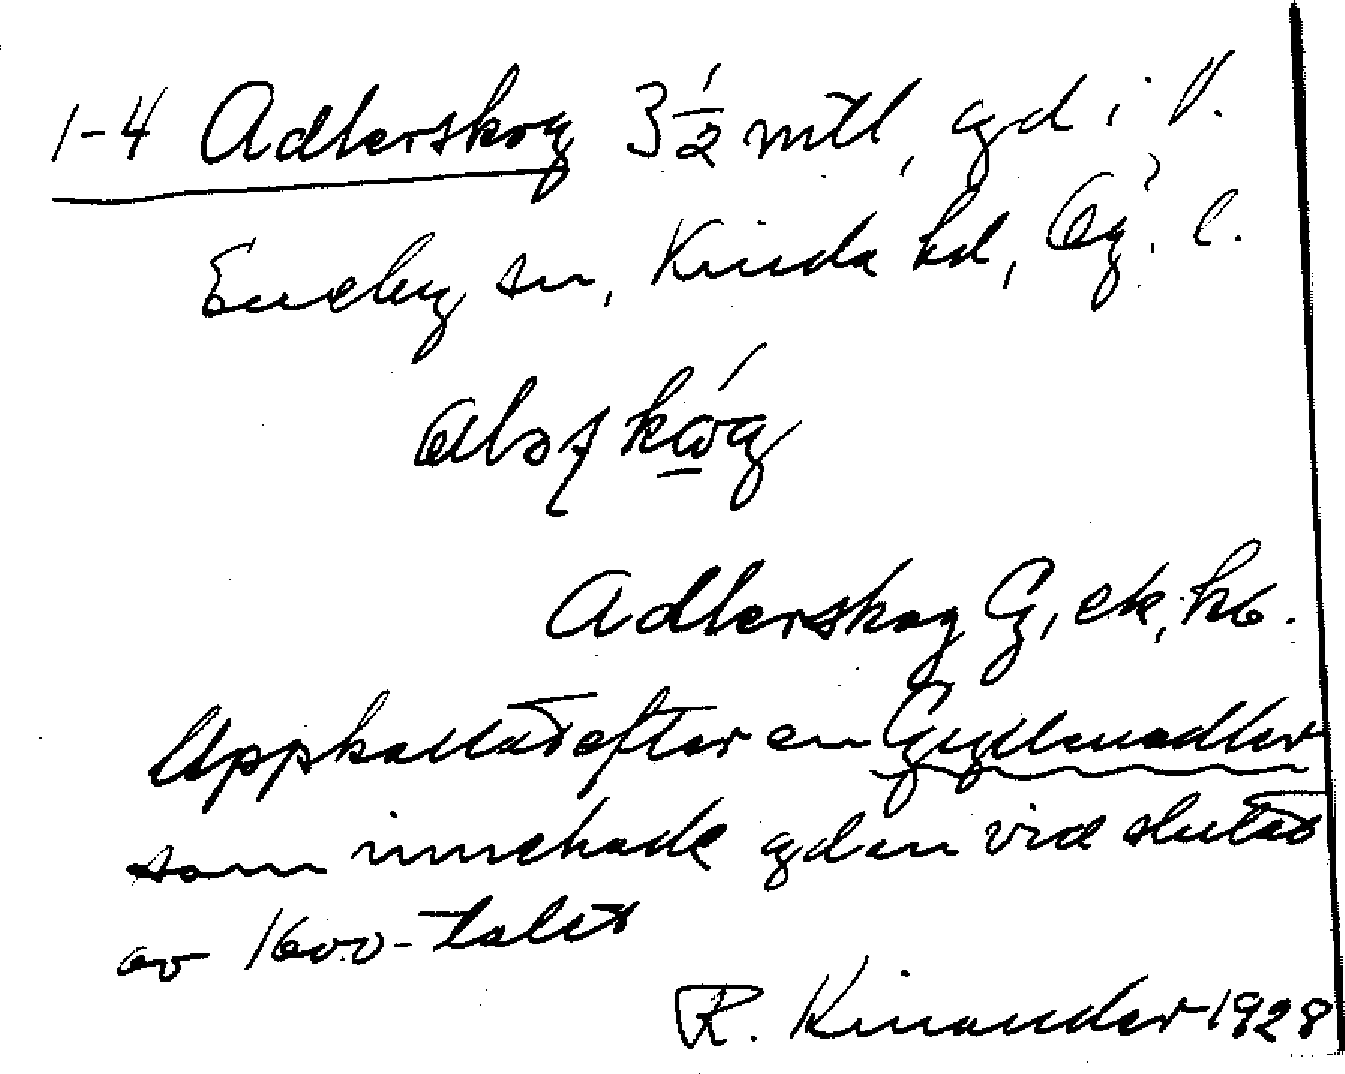 1-4 Adlerskog 3 1/2 mtl, gd i V.
Eneby sn, Kinda hd, Ög. l.
Adlerskog G, ek, hb.
Uppkallat efter en Gyllenadler
som innehade gden vid slutet
av 1600-talet
R. Kinander 1928